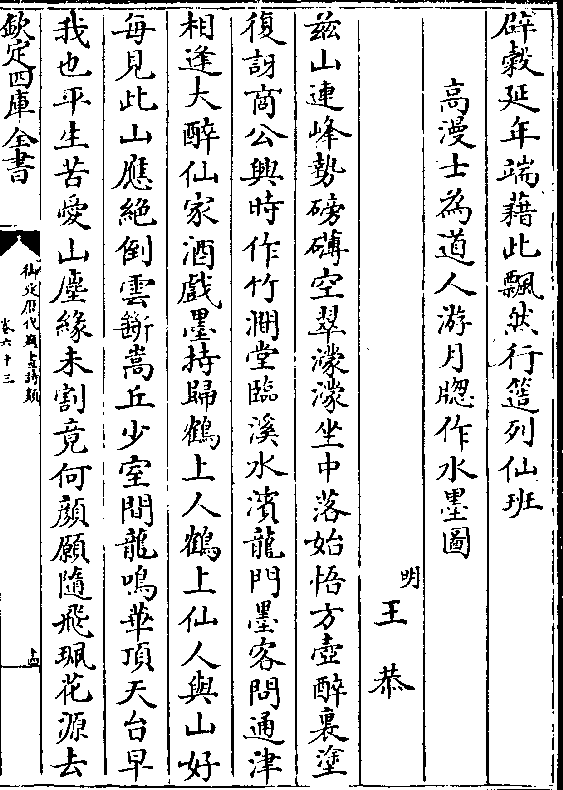 辟穀延年端藉此飄然行簉列仙班
高漫士為道人游月牕作水墨圖
明王恭
兹山連峰勢磅礴空翠濛濛坐中落始悟方壺醉裏塗
復訝商公興時作竹澗堂臨溪水濱龍門墨客問通津
相逢大醉仙家酒戲墨持歸鶴上人鶴上仙人與山好
每見此山應絶倒雲斷嵩丘少室間龍鳴華頂天台早
我也平生苦愛山塵緣未割竟何顔願隨飛珮花源去
欽定四庫全書
御定歴代題畫詩類
卷六十三